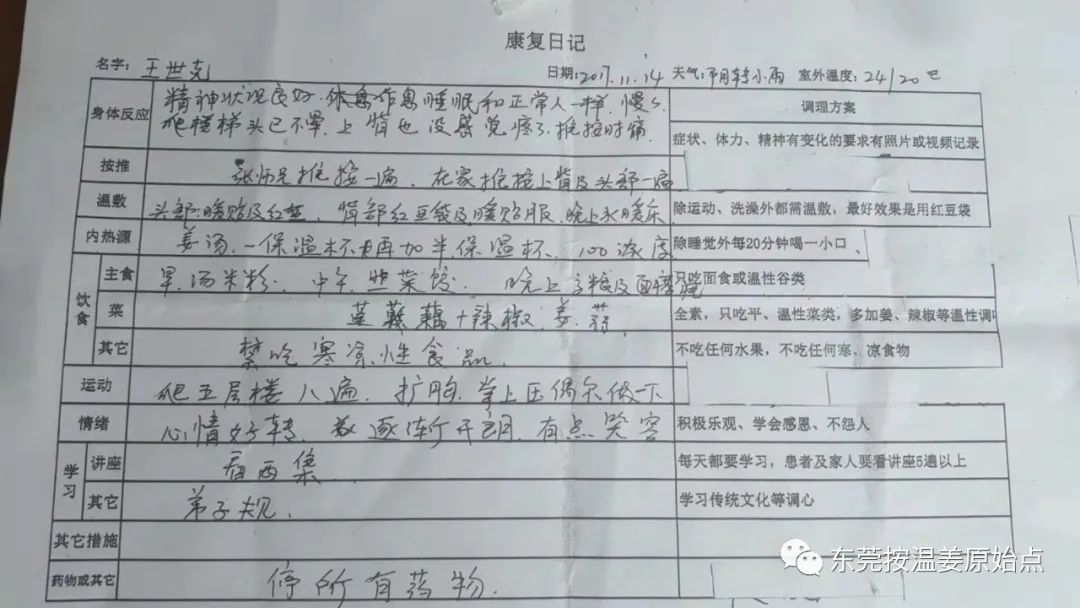 康复日记
名字：王世克 日期：2017.11.14 天气：阴转小雨 室外温度：24/20℃
身体反应 精神状况良好.休息作息睡眠和正常人一样,慢慢
爬楼梯头已不晕,上背也没感觉疼了.推按时痛
调理方案
症状、体力、精神有变化的要求有照片或视频记录
按推 张师兄推按一遍,在家推按上背及头部一遍
温敷 头部:暖贴及红豆,背部红豆袋及暖贴服,晚上水暖床 除运动、洗澡外都需温敷，最好效果是用红豆袋
内热源 姜汤.一保温杯再加半保温杯,100浓度 除睡觉外每20分钟喝一小口、
饮食 主食 早,汤米粉.中午,韭菜饺. 晚上 及面 只吃面食或温性谷类
菜 藕+辣椒.姜. 全素，只吃平、温性菜类，多加姜、辣椒等温性调
其它 禁吃寒凉性食品. 不吃任何水果，不吃任何寒、凉食物
运动 爬五层楼八遍.扩胸.掌上压偶尔做一下
情绪 心情好转. 逐渐开朗.有点笑容 积极乐观、学会感恩、不怨人
学习 讲座 看两集 每天都要学习，患者及家人要看讲座5遍以上
其它 弟子规. 学习传统文化等调心
其它措施
药物或其它 停所有药物.
东莞按温姜原始点